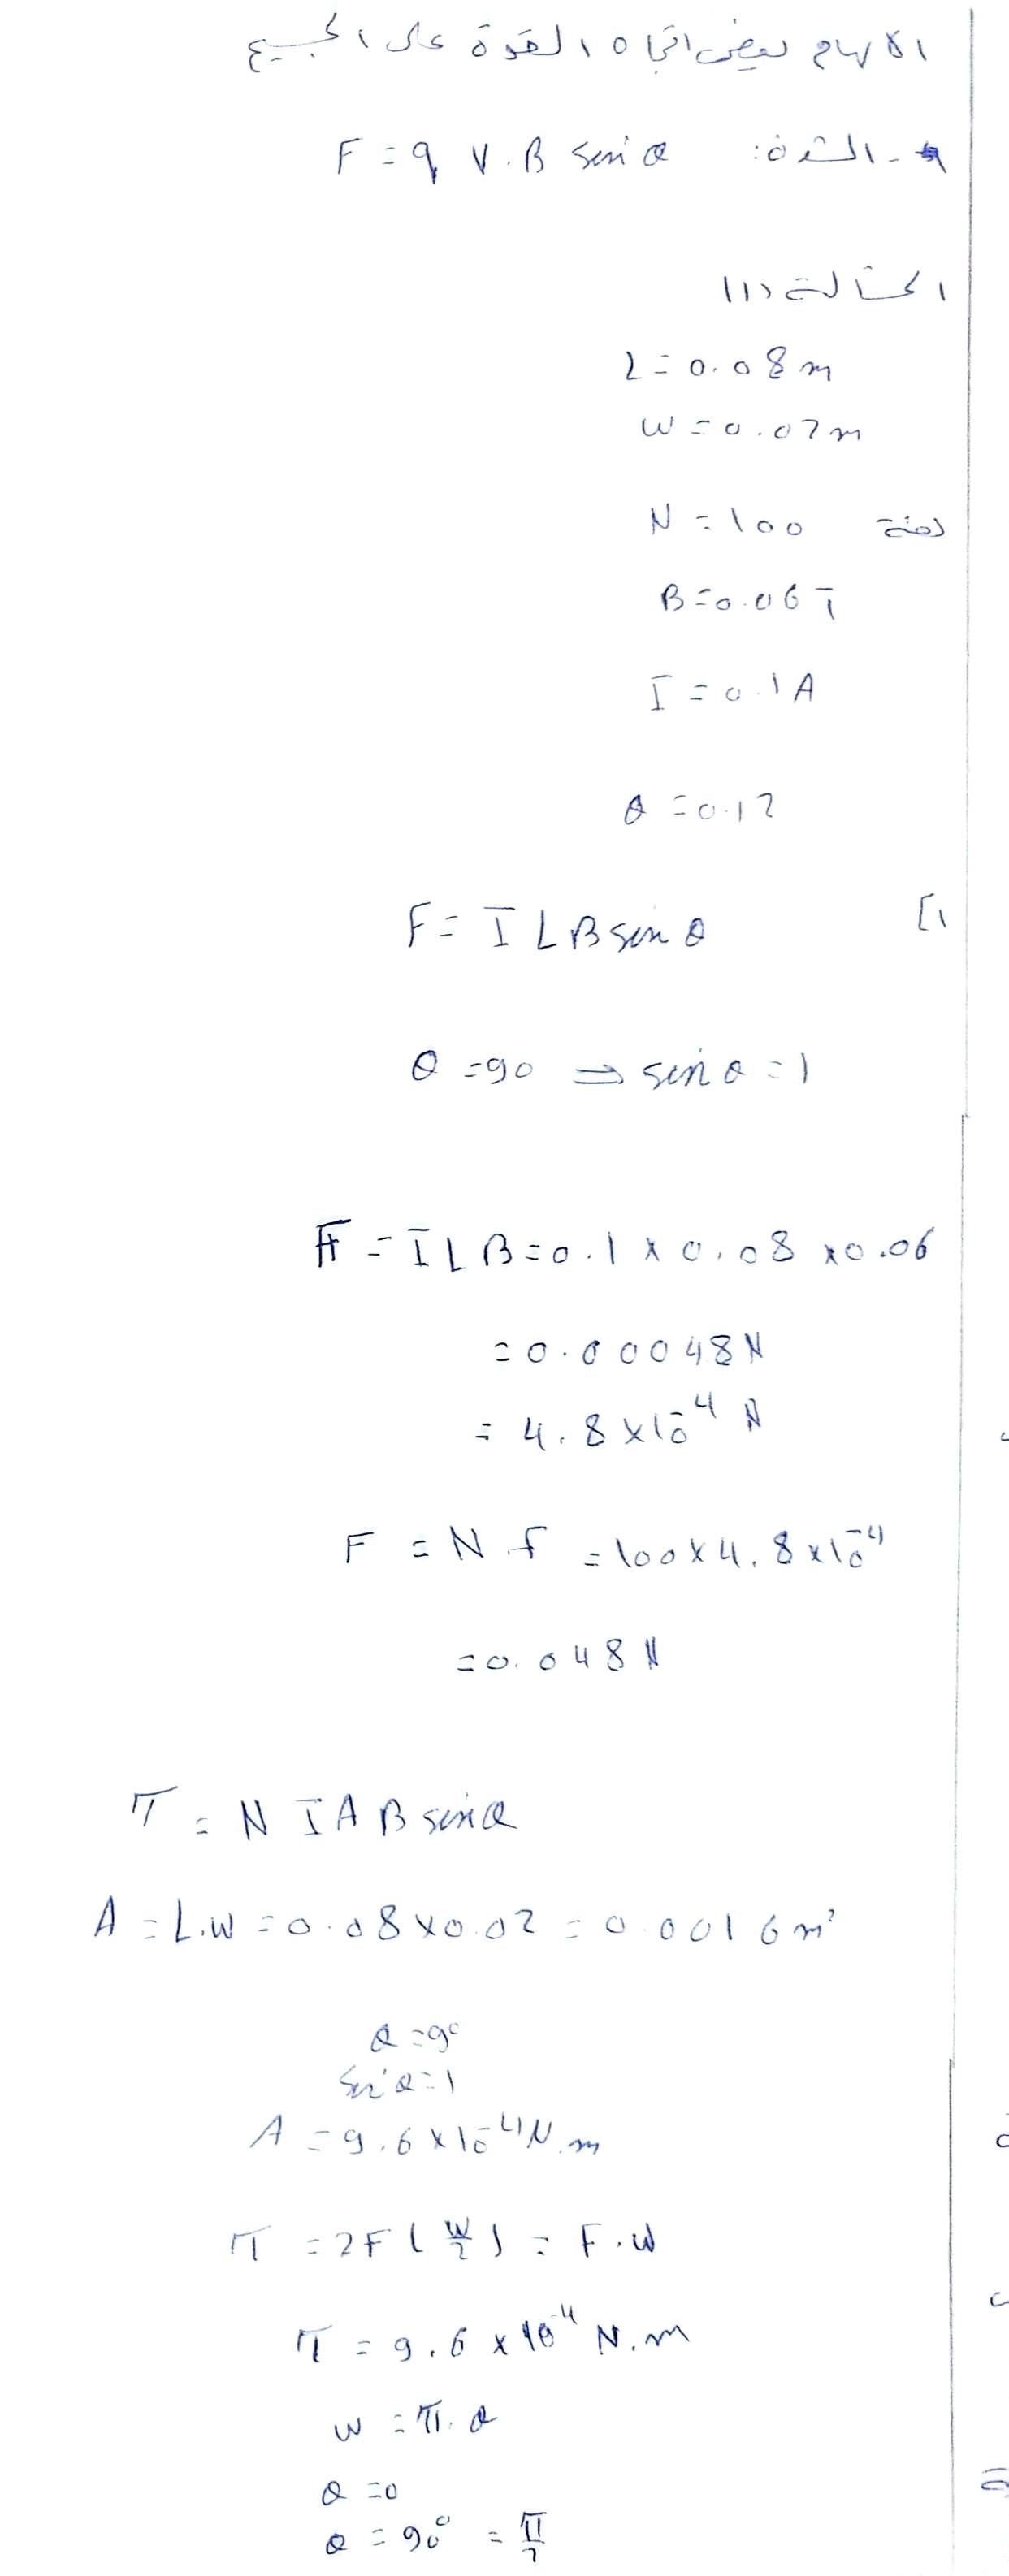 الابهام يعني اتجاه القوة على الجميع
- الشدة: F = q V . B sin θ
الحالة (1)
L = 0.08 m
W = 0.02 m
N = 100 لفة
B = 0.06 T
I = 0.1 A
θ = 0.12
[1 F = I L B sin θ
θ = 90 ⇒ sin θ = 1
F = I L B = 0.1 × 0.08 × 0.06
= 0.00048 N
= 4.8 × 10⁻⁴ N
F = N . f = 100 × 4.8 × 10⁻⁴
= 0.048 N
T = N I A B sin θ
A = L.W = 0.08 × 0.02 = 0.0016 m²
θ = 90
sin θ = 1
A = 9.6 × 10⁻⁴ N.m
T = 2F ( W/2 ) = F . W
T = 9.6 × 10⁻⁴ N.m
W = T . θ
θ = 0
θ = 90° = π/2